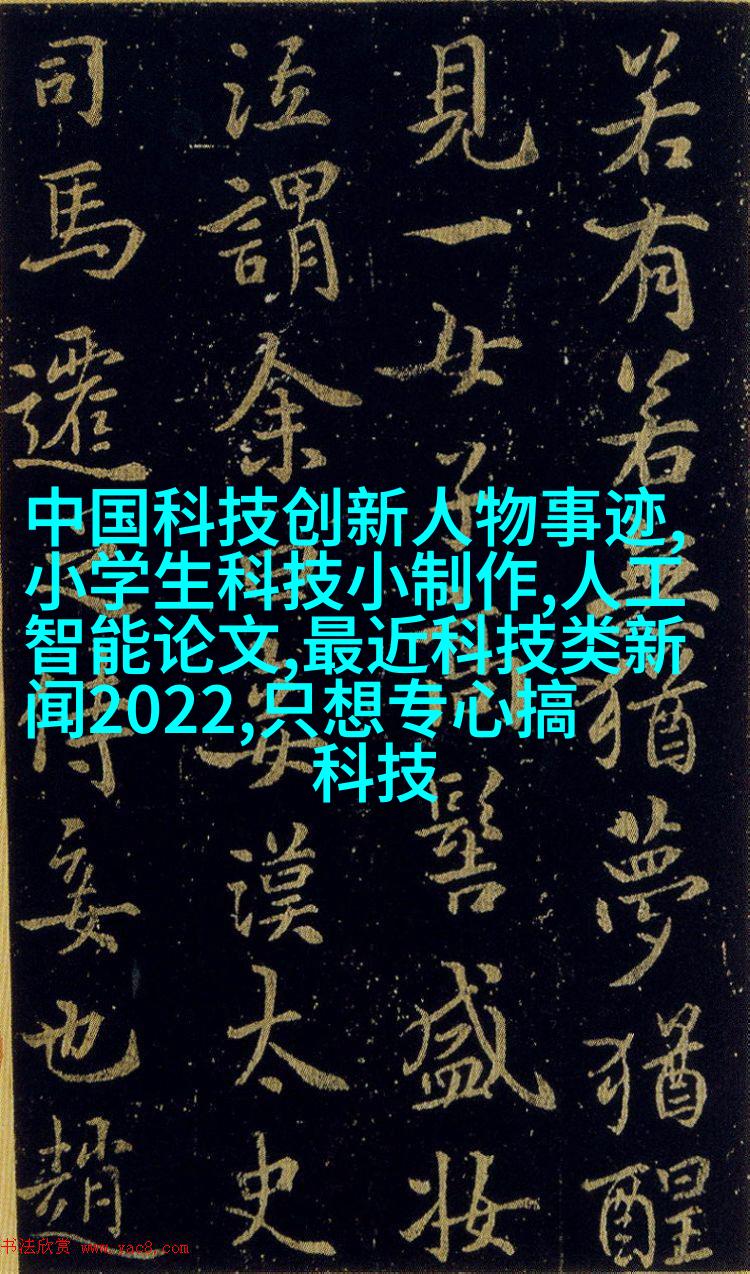 若有若無猶夢猶醒
見一女子高髻盛妝
泣謂余曰妾漢太史
司馬遷之侍妾也趙
中国科技创新人物事迹,
小学生科技小制作,人工
智能论文,最近科技类新
闻2022,只想专心搞
科技
书法欣赏 www.yac8.com